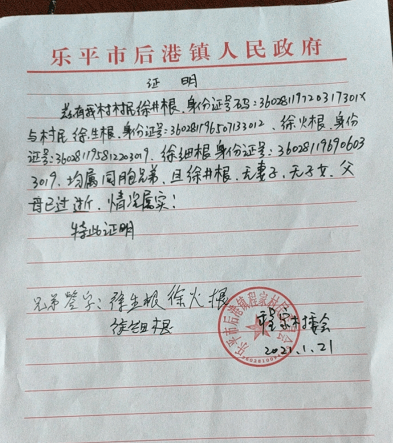 乐平市后港镇人民政府
证 明
兹有我村村民徐井根,身份证号码:36028119720317301X
与村民徐生根,身份证号:360281196507133012、徐火根,身份
证号:360281195812203019、徐细根身份证号:36028119690603
3019,均属同胞兄弟,且徐井根,无妻子,无子女,父
母已过逝,情况属实!
特此证明
兄弟签字:徐生根 徐火根
徐细根
程家村委会
2021.1.21
乐平市后港镇程家村